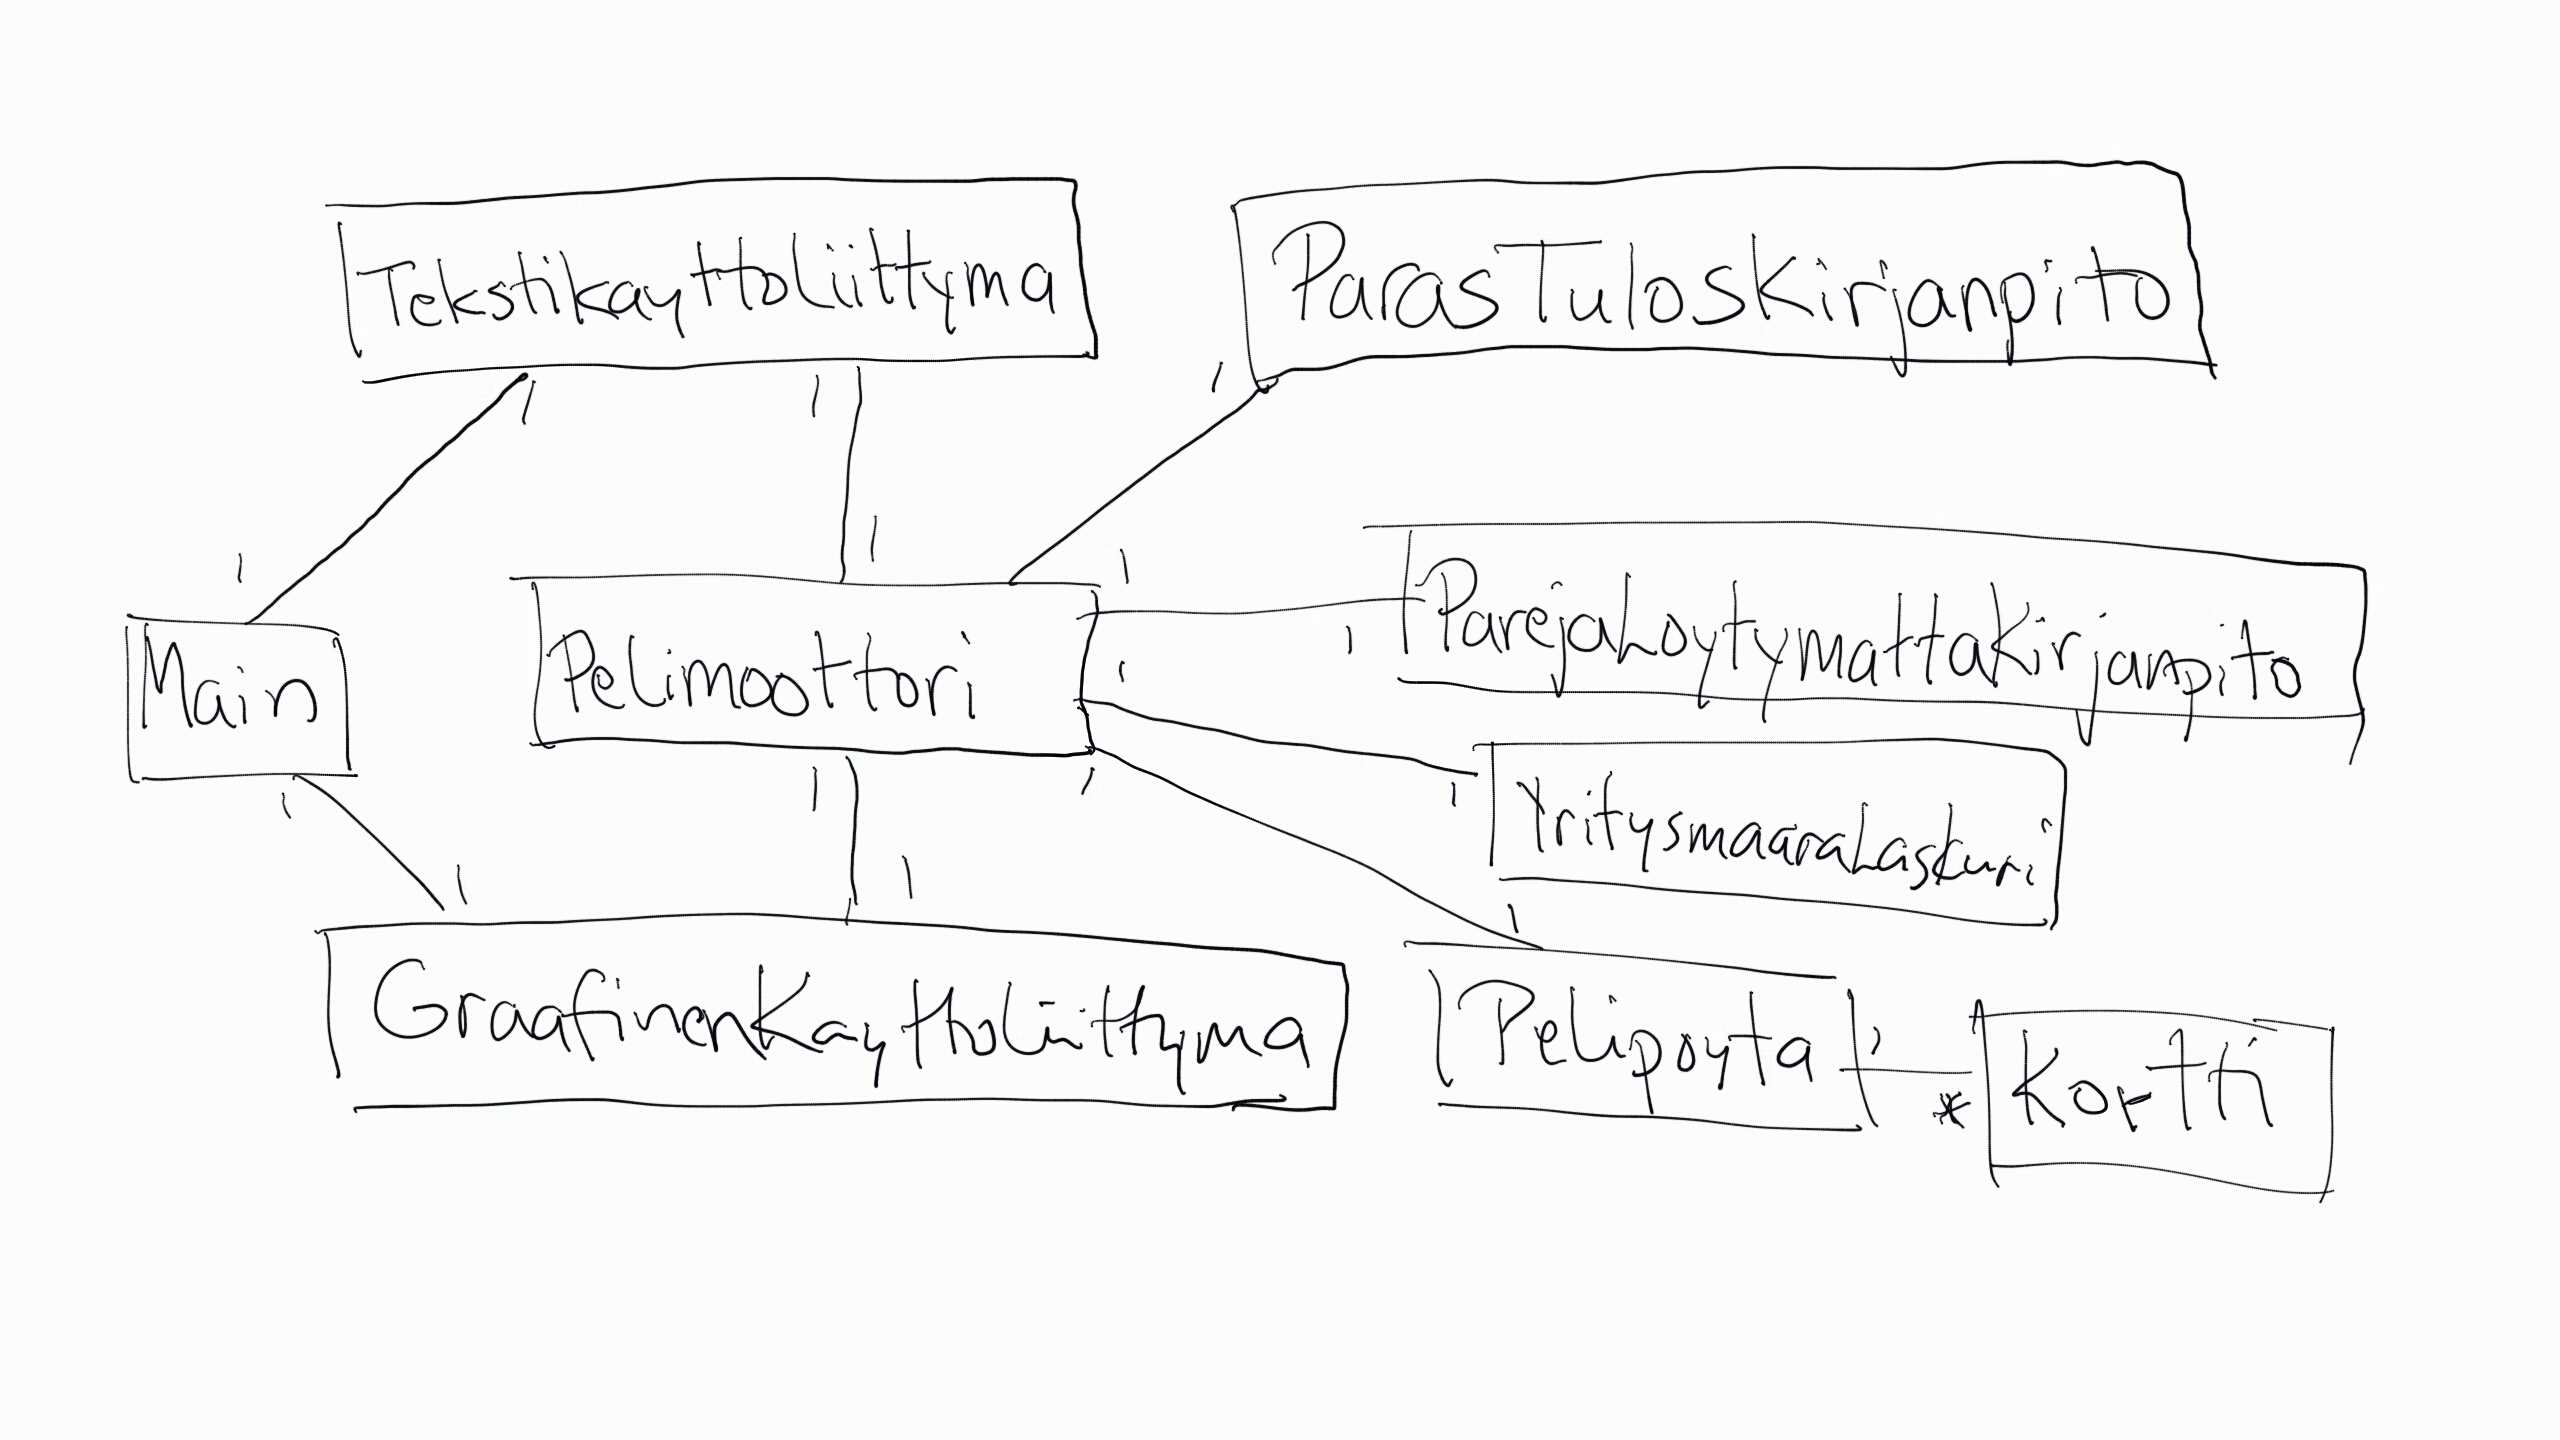 TekstikayttoLiittyma
ParasTulosKirjanpito
1
1
1
1
1
1
Main
Pelimoottori
ParejaLoytymattaKirjanpito
1
1
1
1
1
1
YritysmaaraLaskuri
1
1
1
1
GraafinenKayttoLiittyma
Pelipoyta
1
*
Kortti